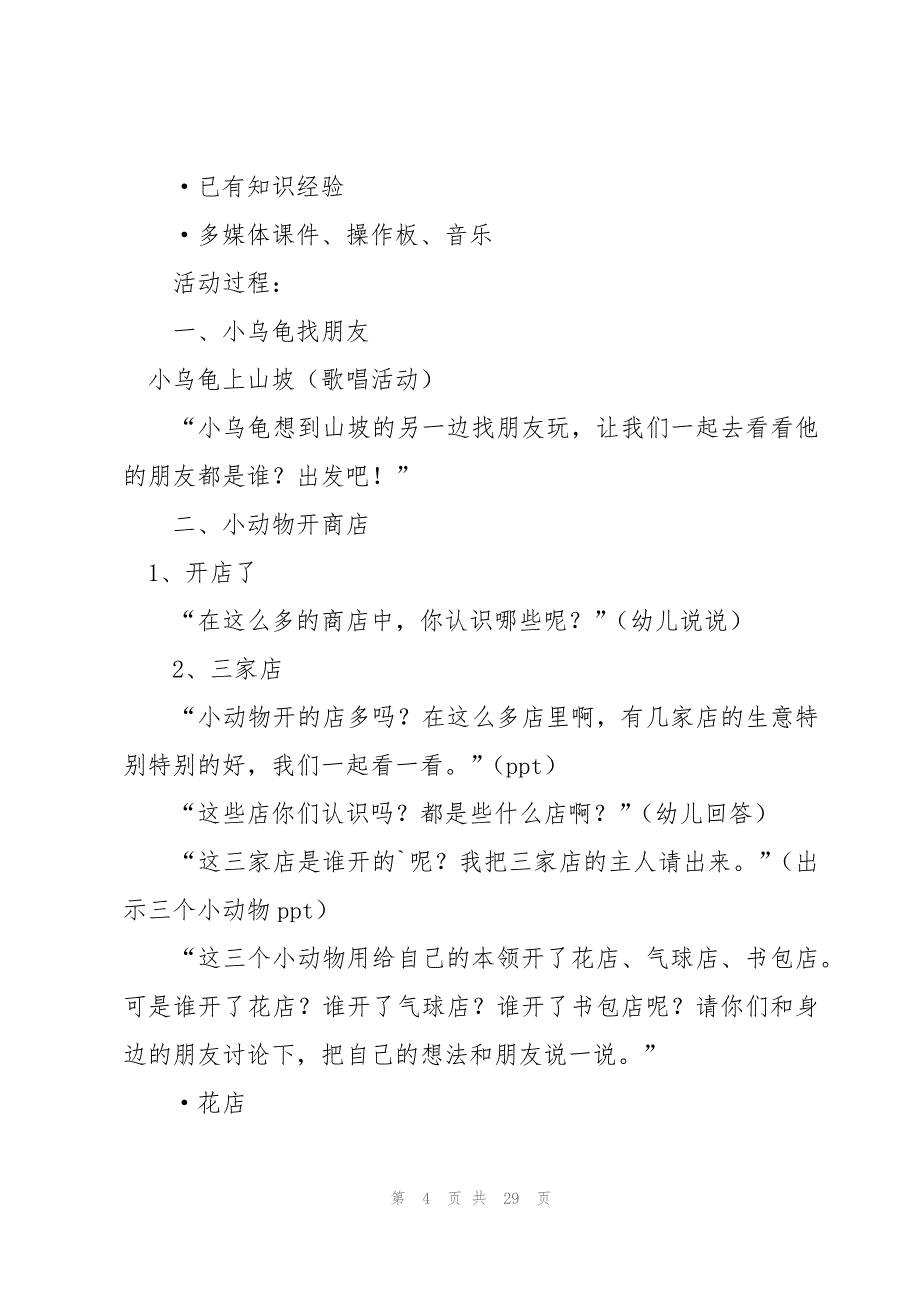 ·已有知识经验
·多媒体课件、操作板、音乐
活动过程：
一、小乌龟找朋友
小乌龟上山坡（歌唱活动）
“小乌龟想到山坡的另一边找朋友玩，让我们一起去看看他
的朋友都是谁？出发吧！”
二、小动物开商店
1、开店了
“在这么多的商店中，你认识哪些呢？”（幼儿说说）
2、三家店
“小动物开的店多吗？在这么多店里啊，有几家店的生意特
别特别的好，我们一起看一看。”（ppt）
“这些店你们认识吗？都是些什么店啊？”（幼儿回答）
“这三家店是谁开的`呢？我把三家店的主人请出来。”（出
示三个小动物ppt）
“这三个小动物用给自己的本领开了花店、气球店、书包店。
可是谁开了花店？谁开了气球店？谁开了书包店呢？请你们和身
边的朋友讨论下，把自己的想法和朋友说一说。”
·花店
第 4 页 共 29 页